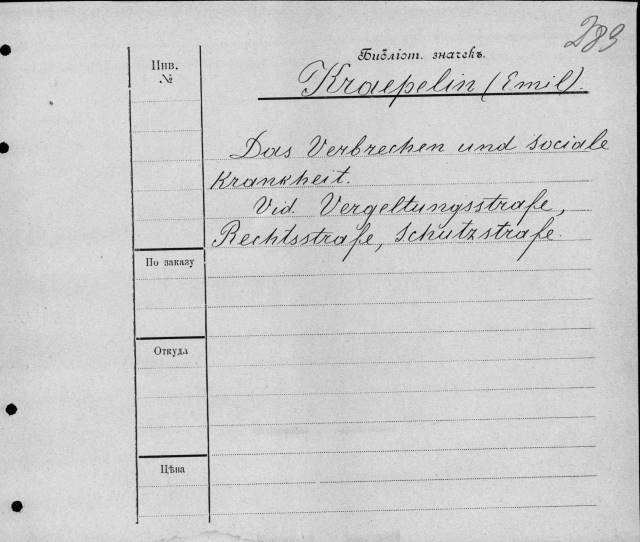 289
Библіот. значекъ.
Инв.
№
Kraepelin (Emil).
Das Verbrechen und sociale
Krankheit.
Vid. Vergeltungsstrafe,
Rechtsstrafe, Schutzstrafe.
По заказу
Откуда
Цѣна